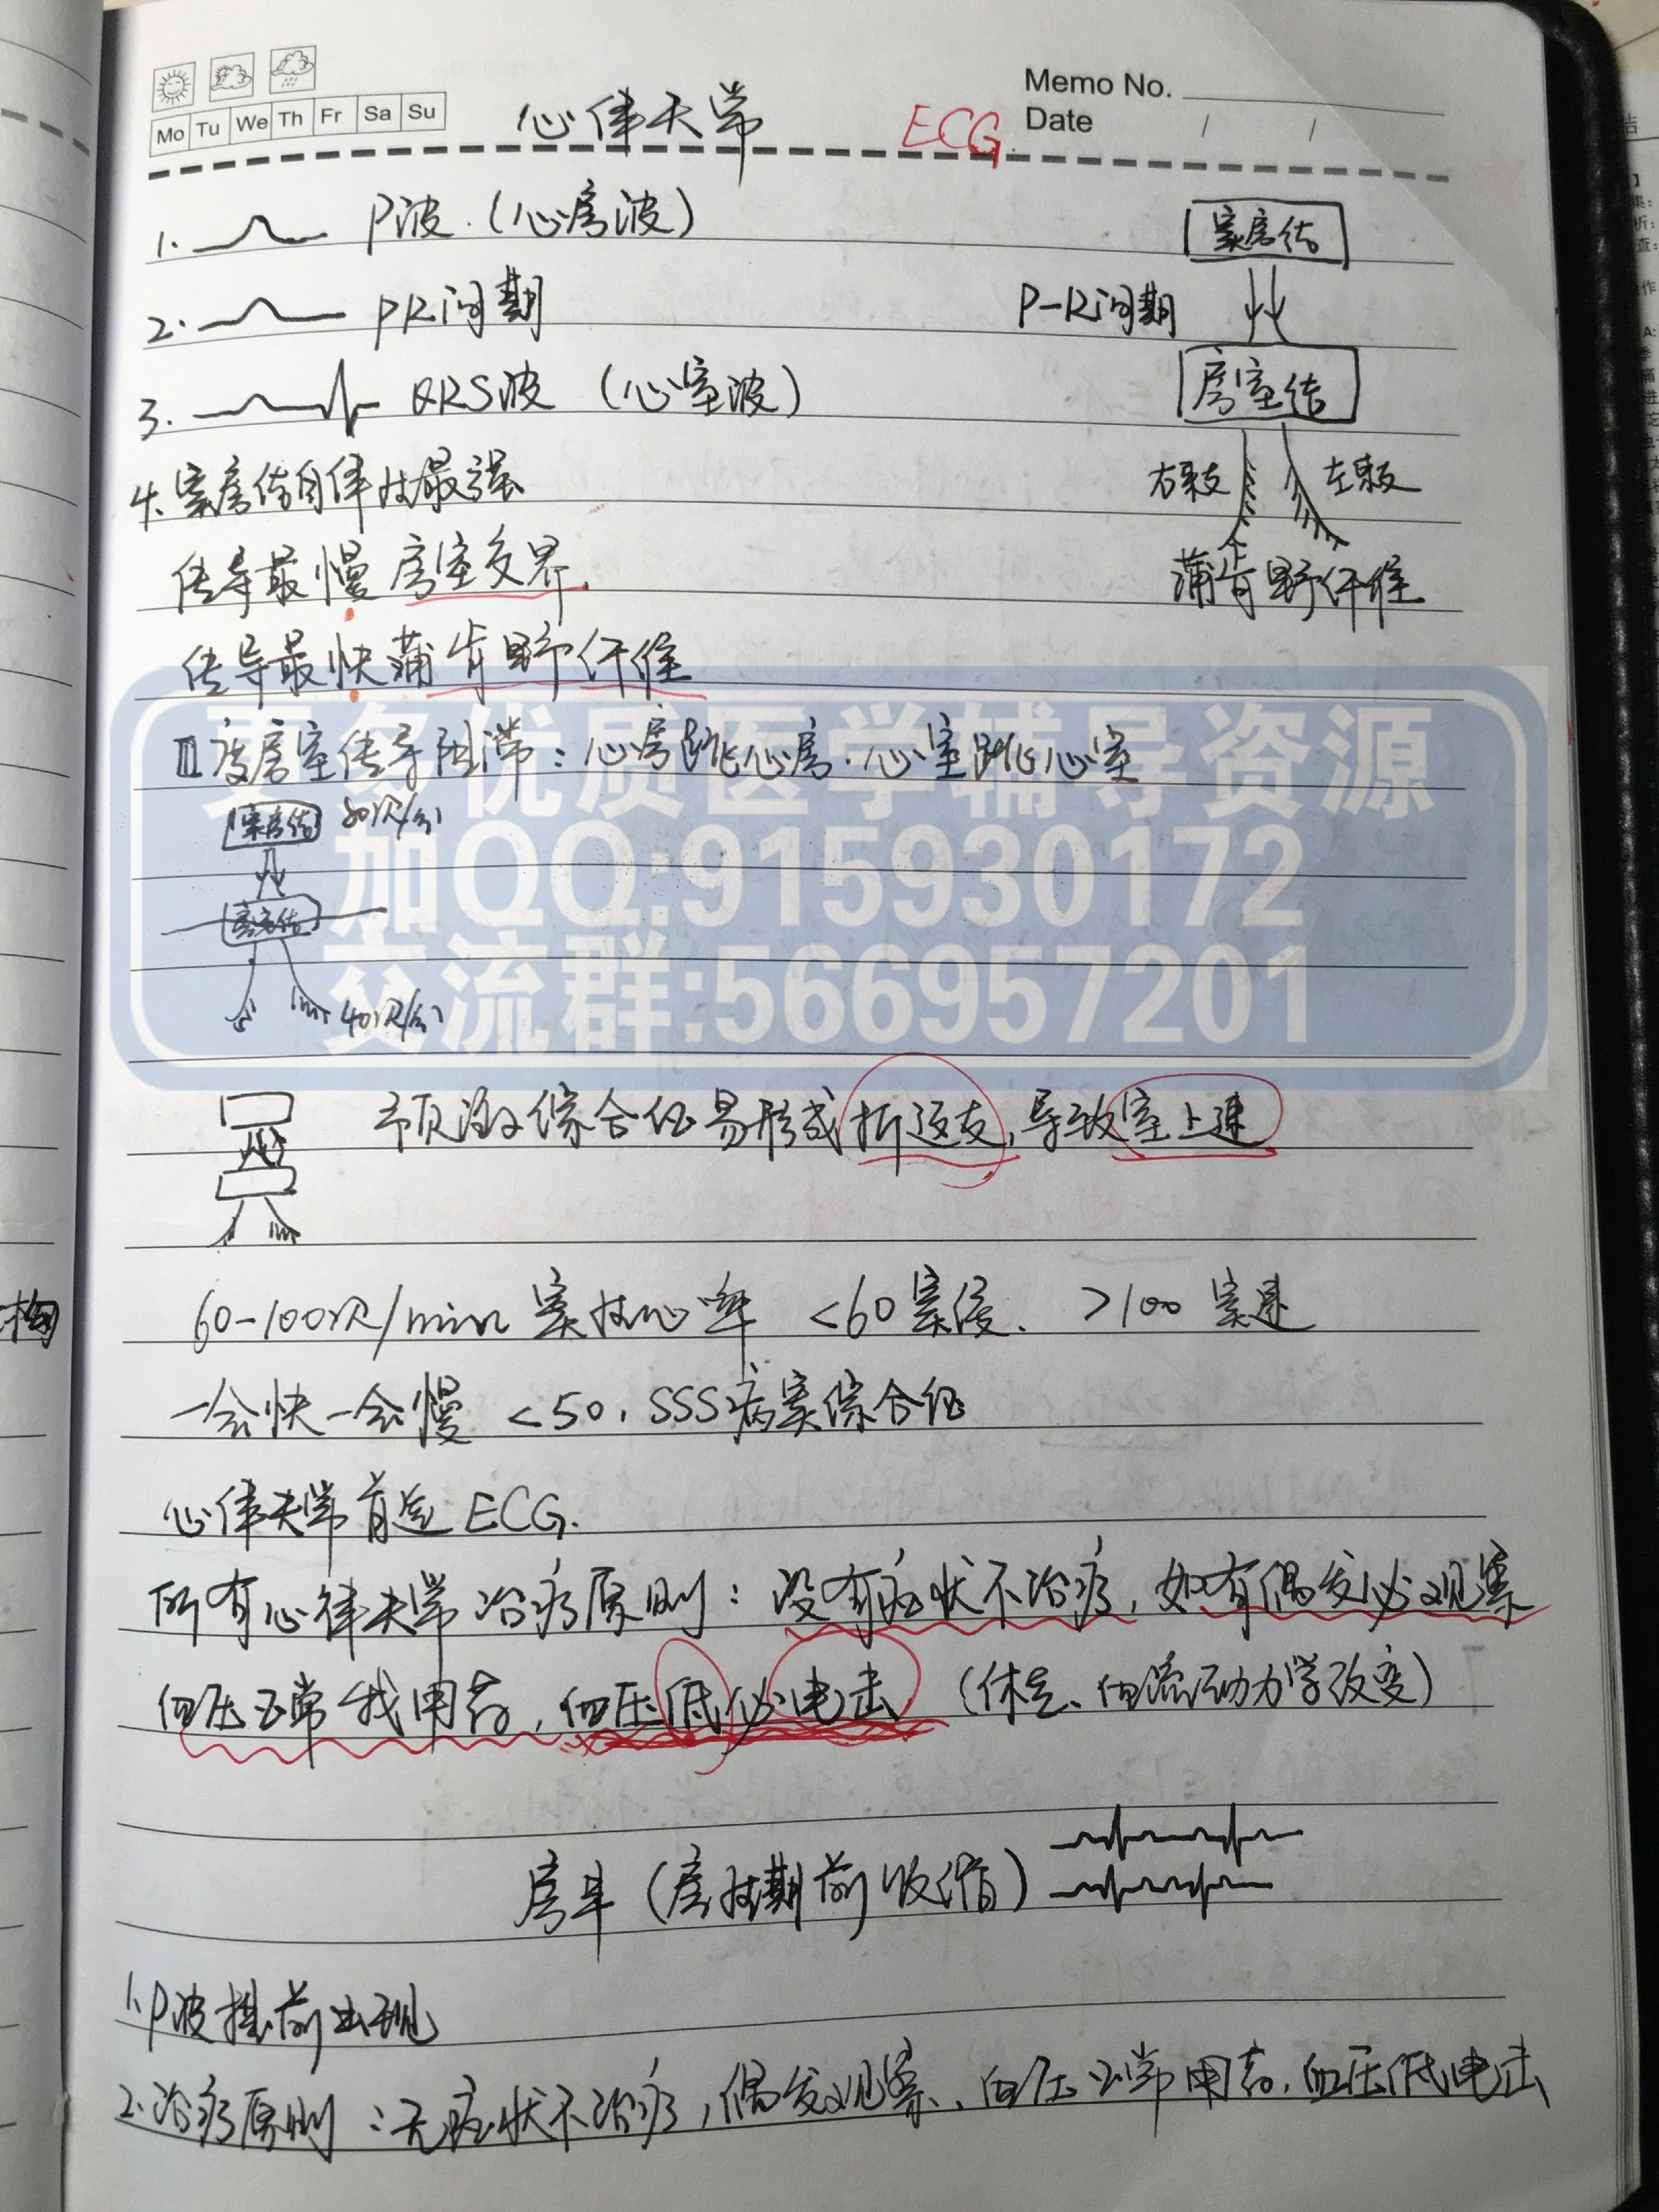 Mo Tu We Th Fr Sa Su
Memo No.
Date / /
心律失常 ECG.
1. P波.(心房波)
窦房结
2. PR间期
P-R间期
3. QRS波 (心室波)
房室结
4. 窦房结自律性最强
右束支 左束支
传导最慢 房室交界.
蒲肯野纤维
传导最快蒲肯野纤维
更多优质医学辅导资源
加QQ:915930172
交流群:566957201
III度房室传导阻滞:心房跳心房.心室跳心室
窦房结 80次/分
房室结
40次/分
预激综合征易形成折返支,导致室上速
60-100次/min 窦性心率 <60窦缓. >100 窦速
一会快一会慢 <50, SSS病窦综合征
心律失常首选ECG.
所有心律失常治疗原则:没有症状不治疗,如有偶发必观察
血压正常找用药,血压低必电击 (休克、血流动力学改变)
房早(房性期前收缩)
1. P波提前出现
2. 治疗原则:无症状不治疗,偶发观察、血压正常用药,血压低电击
构